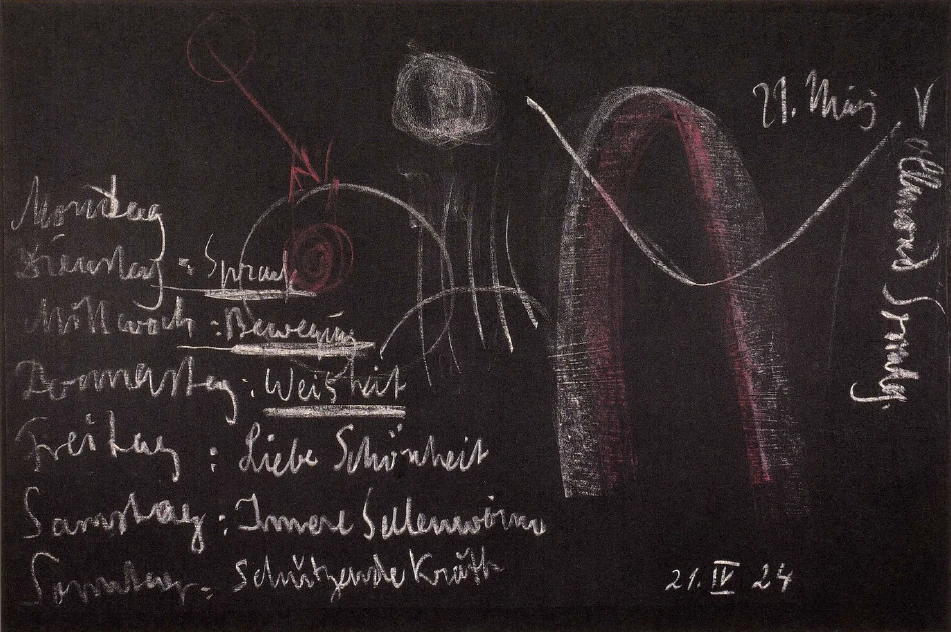 Montag
Dienstag = Sprach
Mittwoch : Bewegung
Donnerstag : Weisheit
Freitag : Liebe Schönheit
Samstag : Innere Seelenwärme
Sonntag - Schützende Kräfte
21. März
Vollmond Sonntag.
21. IV 24